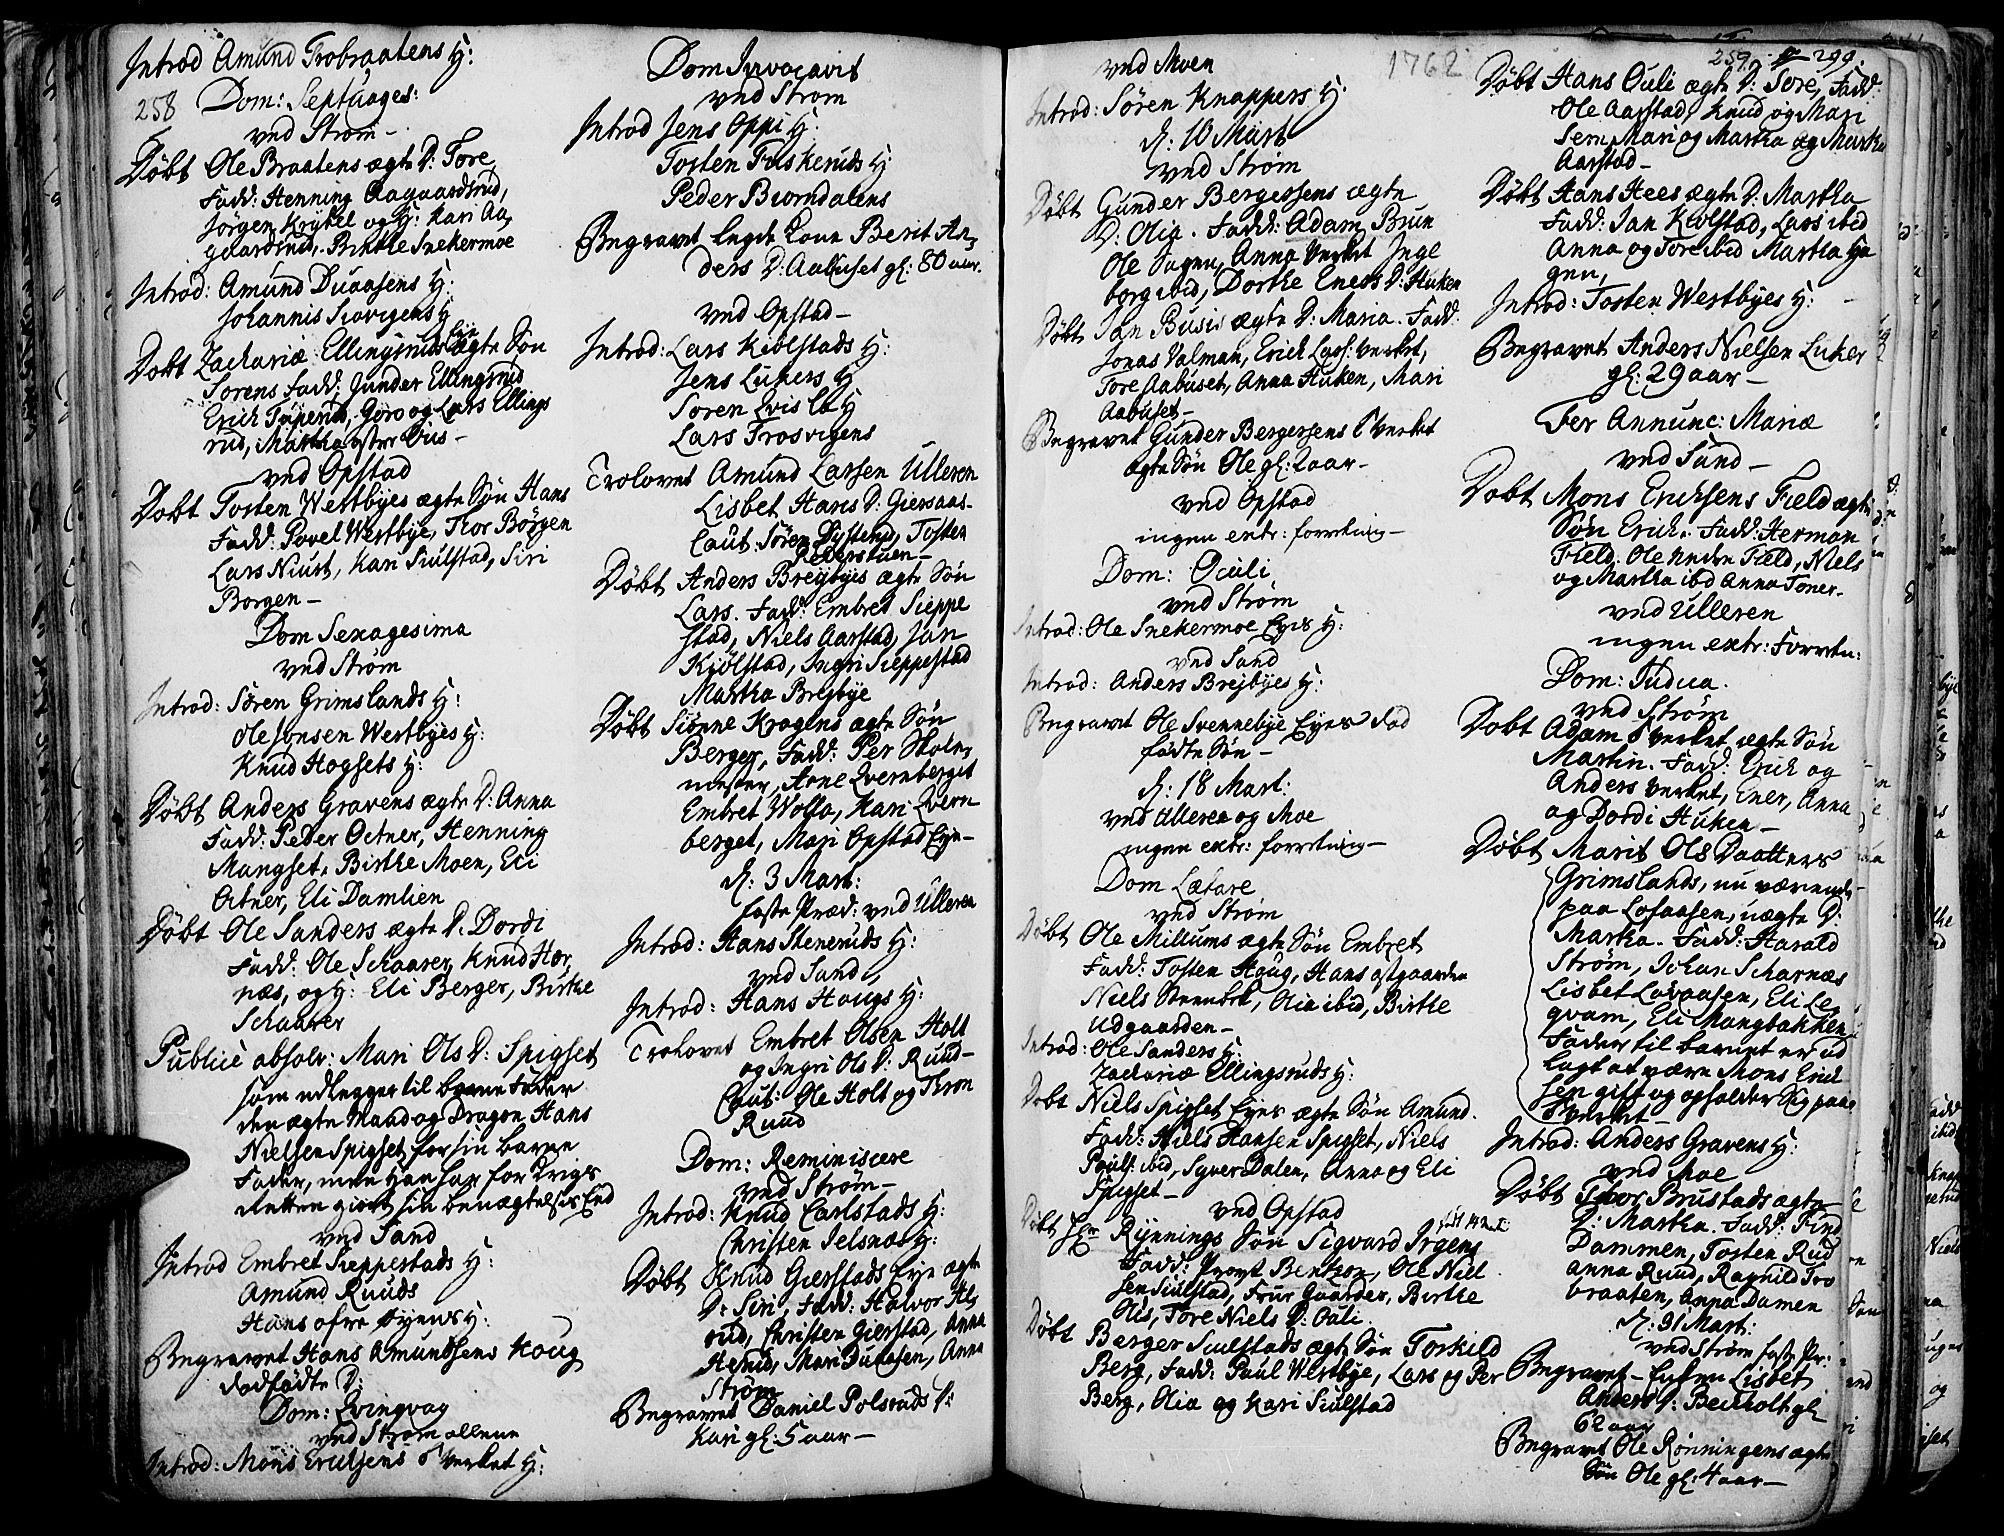 Introd Amund Trobraatens H:
258 Dom: Septuages:
ved Strøm -
Døbt Ole Braatens ægte D: Tore
Fadd: Henning Aagaardsrud,
Jørgen Krykel og H: Kari Aa,
gaardsrud, Birthe Snekermoe
Introd: Amund Duaasens H:
Johannis Skovigens H
Døbt Zachariæ Ellingsruds Eje ægte Søn
Sørens Fadd: Gunder Ellingsrud
Erich, Gøro og Lars Ellings
rud, Martha
ved Opstad
Døbt Tosten Westbyes ægte Søn Hans
Fadd: Povel Westbye, Thor Børgen
Lars Niust, Kari Siulstad, Siri
Borgen -
Dom Sexagesima
ved Strøm
Introd: Søren Grimslands H:
Ole Jonsen Westbyes H:
Knud Hogsets H:
Døbt Anders Gravens ægte D: Anna
Fadd: Peder Ochner, Henning
Mangset, Birthe Moen, Eli
Ochner, Eli Damlien
Døbt Ole Sanders ægte D. Dordi
Fadd: Ole Schaarer, Knud Hor,
næs, og H: Eli Berger, Birthe
Schaarer
Publicè absolv: Mari Ols D: Spigset
som udlegger til barne Fader
den ægte Mand og Dragon Hans
Nielsen Spigset for sin barne
Fader, men han har for
Retten giort sin benægtelses Eed
ved Sand
Introd Embret Sieppestads H:
Amund Ruuds
Hans øyens H:
Begravet Hans Amundsens Houg
dødfødte D:
Dom: Qvinqvag
ved Strøm allene
Introd: Mons Erichsens Verket H:
Dom Invocavit
ved Strøm
Introd Jens Oppi H:
Tosten Fuskeruds H:
Peder Biørndalens
Begravet Legds Kone Berit An,
ders D: Aabuset gl: 80 aar.
ved Opstad -
Introd: Lars Kiølstads H:
Jens Lukers H
Søren H
Lars Frosvigens
Trolovet Amund Larsen Ulleren
Lisbet Hans D: Giersaas-
Caut: Søren Dystend, Tosten
Pederstuen -
Døbt Anders Brejbyes ægte Søn
Lars. Fadd: Embret Sieppe
stad, Niels Aarstad, Jan
Kiølstad, Ingri Sieppestad
Martha Brejbye
Døbt Siønne Krogens ægte Søn
Berger, Fadd: Per Skole,
mester, Arne Qvernberget
Embret Wolla, Kari Qvern
berget, Mari Opstad Eye -
d: 3 Mart:
faste Præd: ved Ulleren
Introd: Hans Steneruds H:
ved Sand,
Introd: Hans Hougs H:
Trolovet Embret Olsen Holt
og Ingri Ols D: Ruud -
Caut: Ole Holt og Thron
Ruud
Dom: Reminiscere
ved Strøm -
Introd: Knud Carlstads H:
Christen Selsnæs H:
Døbt Knud Gierstads Eye ægte
D: Siri, Fadd: Halvor Al,
rud, Christen Gierstad, Anna
Alrud, Mari Duaasen, Anna
Strøm
Begravet Daniel Polsruds D:
Kari gl: 5 aar -
1762
ved Moen
Introd: Søren Knappers H:
d: 10 Mart
ved Strøm
Døbt Gunder Bergersens ægte
D: Olia. Fadd: Adam Brun
Ole Sagen, Anna Verket Inge
borg ibid, Dorthe Eners D: Huken
Døbt Jan Busis ægte D: Maria. Fadd:
Jonas Valman, Erich Lars: Verket,
Tore Aabuset, Anna Huken, Mari
Aabuset -
Begravet Gunder Bergersens Verket
ægte Søn Ole gl: 2 aar -
ved Opstad
ingen extr: forretning -
Dom: Oculi
ved Strøm
Introd: Ole Snekermoe Eyes H:
ved Sand
Introd: Anders Brejbyes H:
Begravet Ole Svennebye Eyes død
fødte Søn -
d: 18 Mart:
ved Ulleren og Moe
ingen extr: forretning -
Dom Lætare
ved Strøm
Døbt Ole Millums ægte Søn Embret
Fadd: Tosten Houg, Hans Østgaarden
Niels, Olia ibid, Birthe
Udgaarden -
Introd: Ole Sanders H:
Zachariæ Ellingsruds H:
Døbt Niels Spigset Eyes ægte Søn Amund.
Fadd: Niels Hansen Spigset, Niels
Pouls: ibid, Syver Dalen, Anna og Eli
Spigset -
ved Opstad
Døbt Hr Rynnings Søn Sigvard Irgens
Fadd: Provst Bentzon, Ole Niel
sen Siulstad, Frue Gaarder, Birthe
Ols, Tore Niels D: Ouli.
Døbt Berger Siulstads ægte Søn Torkild
Berg, Fadd: Paul Westbye, Lars og Per
Berg, Olia og Kari Siulstad
259. 299.
Døbt Hans Ouli ægte D: Tore, Fadd:
Ole Aarstad, Knud og Mari
Sem, Mari og Martha og Martha
Aarstad -
Døbt Hans Hees ægte D: Martha
Fadd: Jan Kiølstad, Lars ibid
Anna og Tore ibid Martha Ha
gen,
Introd: Tosten Westbyes H: -
Begravet Anders Nielsen Luker
gl: 29 aar -
Fer Annunc: Mariæ
ved Sand -
Døbt Mons Erichsens Field ægte
Søn Erich. Fadd: Herman
Field, Ole Nedre Field, Niels
og Martha ibd Anna Toner.
ved Ulleren
ingen extr: Forretn:
Dom: Judica.
ved Strøm
Døbt Adam Verket ægte Søn
Martin. Fadd: Erich og
Anders Verket, Ener, Anna
og Dordi Huken -
Døbt Marit Ols Daatters
Grimslands, nu værende
paa Lofaasen, uægte D:
Martha. Fadd: Harald
Strøm, Johan Scharnæs
Lisbet Lovaasen, Eli Le
qvam, Eli Mangbakken
Fader til barnet er ud
lagt at være Mons Erich
sen gift og opholder sig paa
Verket -
Introd: Anders Gravens H:
ved Moe
Døbt Thor Brustads ægte
D: Martha. Fadd: Find
Dammen, Tosten Rud
Anna Ruud, Ragnild Tro
braaten, Anna Damen
d: 31 Mart:
ved Strøm faste Pr:
Begravet - Enken Lisbet
Anders D: Beitholt gl:
62 aar
Begravet Ole Rønningens ægte
Søn Ole gl: 4 aar -